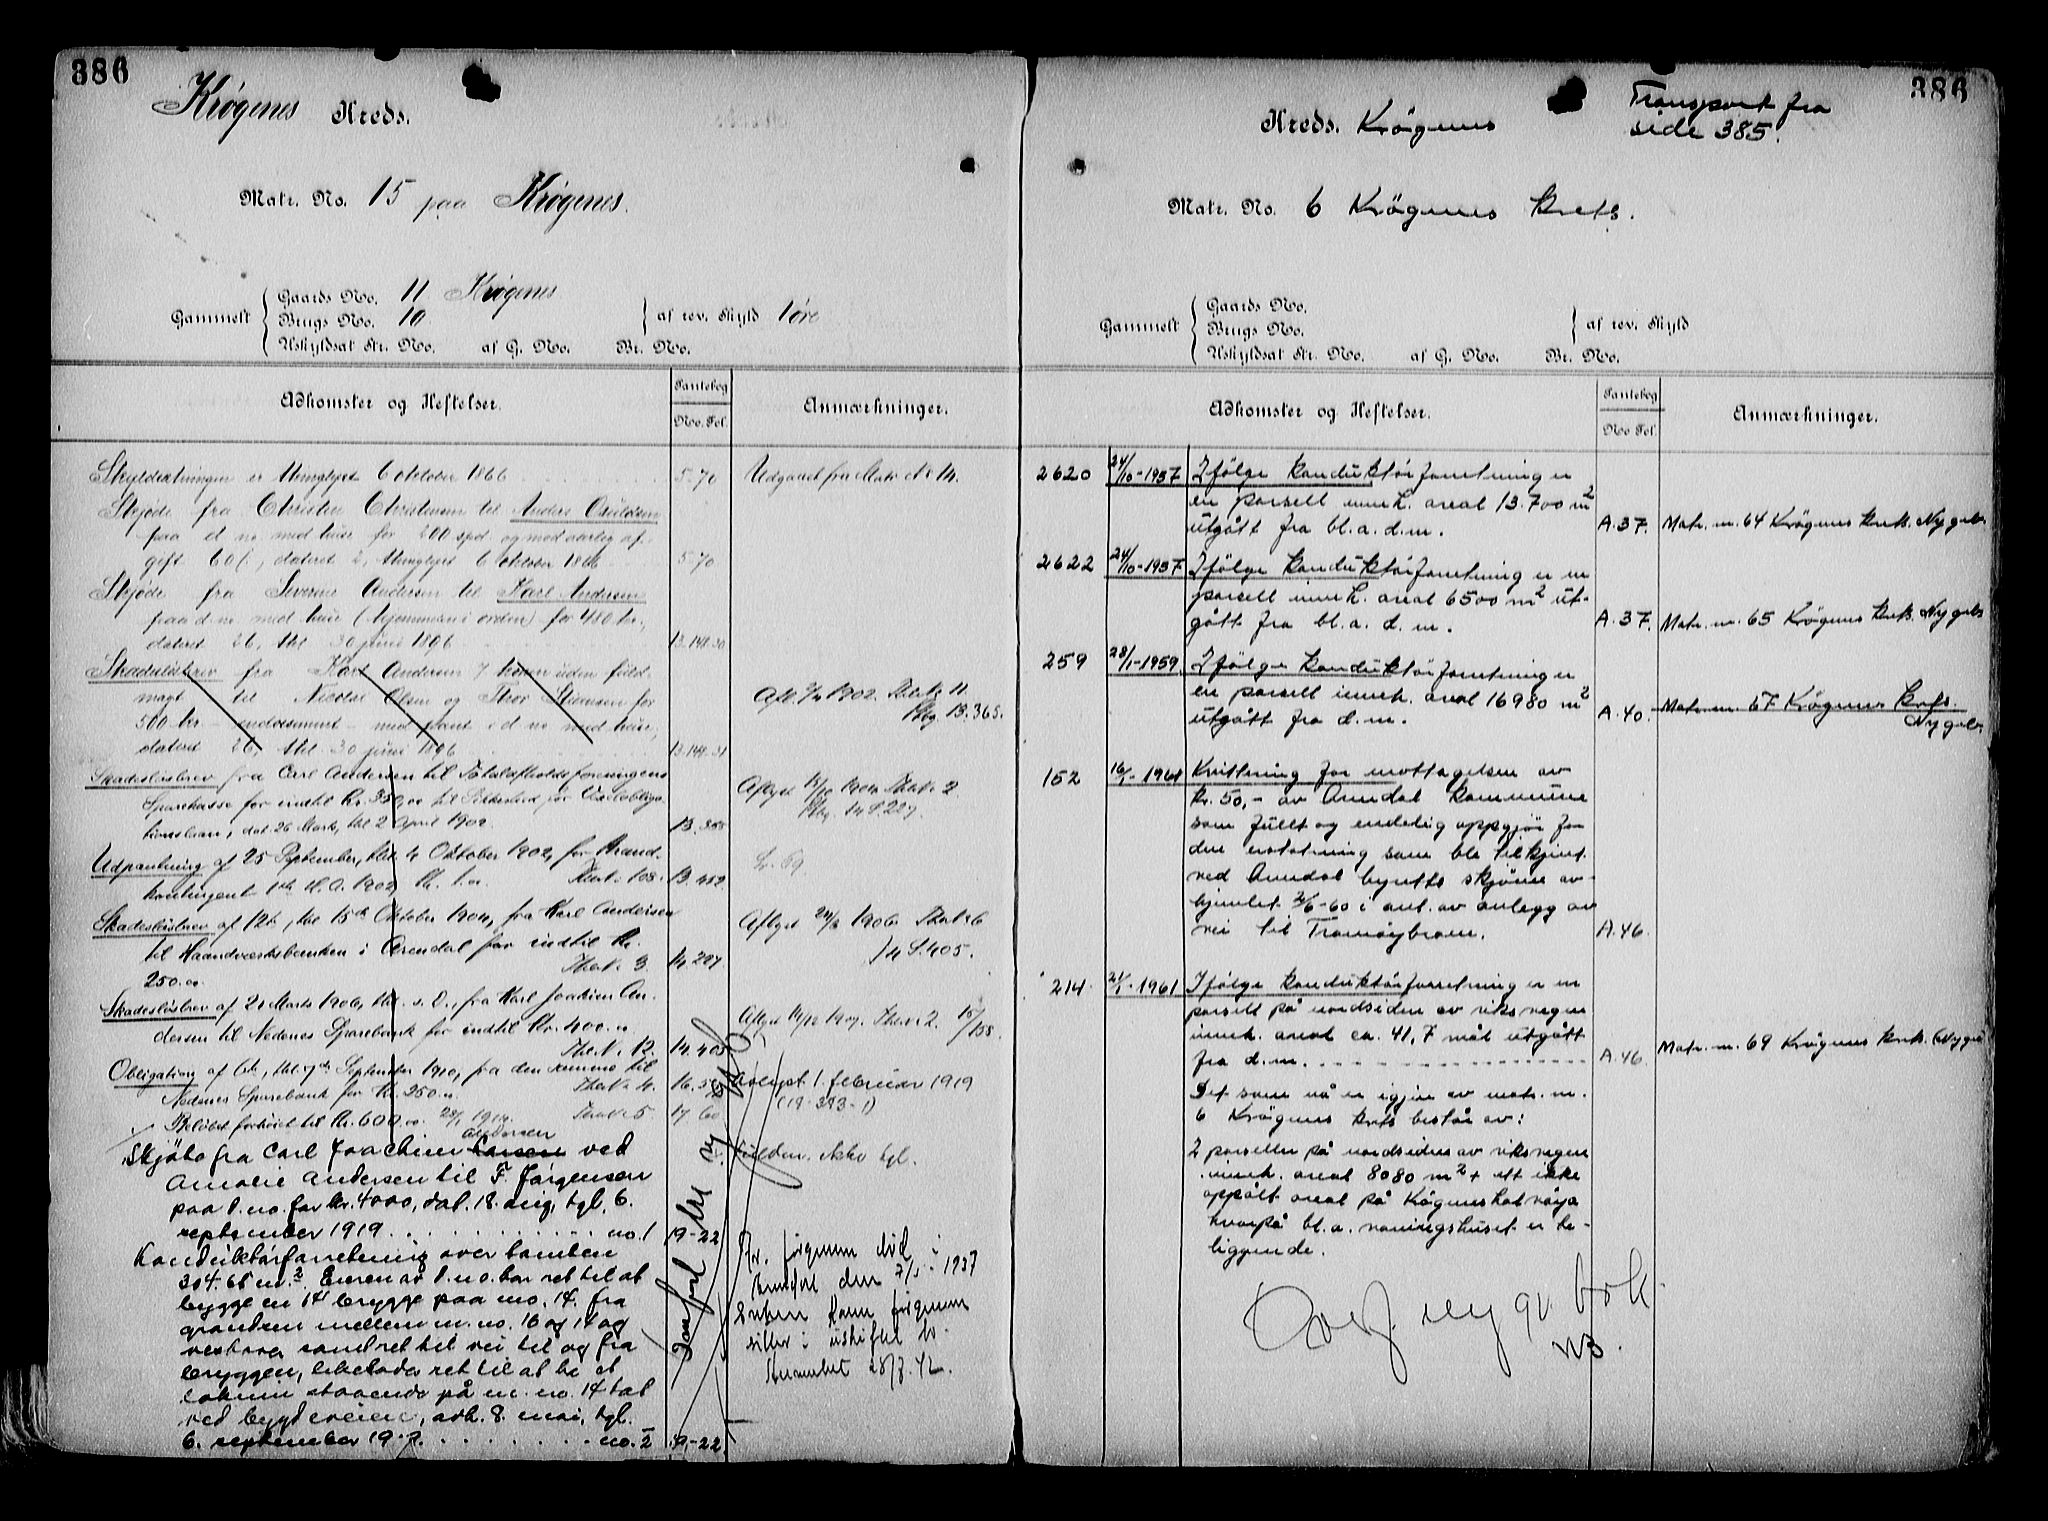 386
Krøgenes Kreds.
Matr. No. 15 paa Krøgenes.
Gammelt
Gaards No. 11 Krøgenes
Brugs No. 10
Uskyldsat Str. No. af G. No. Br. No.
af rev. Skyld 1 øre
Adkomster og Heftelser.
Pantebog
No. Fol.
Anmærkninger.
Skyldsætningen er thinglyst 6 oktober 1866 5.70 Udgaaet fra Matr No 14.
Skjøde fra Christen Christensen til Anders
paa d. no med huse for 200 spd. og med aarlig af-
gift 60 ß, dateret 2, thinglyst 6 oktober 1866 5.70
Skjøde fra Severine Andersen til Karl Andersen
paa d. no. med huse (hjemmelen i orden) for 480 kr.,
dateret 26, thl. 30 juni 1896 13.148.30
Skadesløsbrev fra Karl Andersen uden fuld-
magt til Nicolai Olsen og Thor for
500 kr med pant i d no med huse,
dateret 26, thl. 30 juni 1896 13.148.31
Afl. 1902. Thl. No 11
Pbg. 13.365.
Skadesløsbrev fra Carl Andersen til Totalafholdsforeningens
Sparekasse for indtil Kr. 350,00 til Sikkerhed for
tionslaan, dat. 26 Marts, thl 2 April 1902. 13.355
Aflyst 1904 Thl. No 2
Pbg. 14 S. 227.
Udpantning af 25 September, thl. 4 Oktober 1902, for Brand-
kontingent 1902, Kr. 1.00 Thl. No 108. 13.452.
Skadesløsbrev af 12te, thl 15de Oktober 1904, fra Karl Andersen
til Haandværksbanken i Arendal for indtil Kr.
250.00 Thl. No 3. 14.227.
Aflyst 1906 Thl. No 6
14 S. 405.
Skadesløsbrev af 21 Marts 1906, thl. s. D., fra Karl Joachim An-
dersen til Nedenes Sparebank for indtil Kr. 400.00
Thl. No. 12. 14.405
Aflyst 1907. Thl. No 2. 15/158
Obligation af 6te, thl. 7de September 1910, fra den samme til
Nedenes Sparebank for Kr. 250.00 Thl. No 4. 16.
Avlyst 1. februar 1919
(18-383-1)
Beløbet forhøiet til Kr. 600.00 1914. Thl. No 5 17 60
Andersen
Skjøte fra Carl Joachim Larsen ved
Amalie Andersen til F. Jørgensen
paa d. no. for kr. 4000, dat. 18. aug, tgl. 6.
september 1919 no. 1 19-22
tgl.
Konduktørforretning over tomten
304.68 m.² Eieren av d. no. har ret til at
bygge en 14' brygge paa m.no. 14. fra
grændsen mellem m. no. 16 og 14 og
vestover samt ret til vei til og fra
bryggen, likeledes ret til at ha et
lokum staaende på m. no. 14 tæt
ved bygdeveien, avh. 8. mai, tgl.
6. september 19 no. 2 19-22.
Fr. Jørgensen død i
Arendal den 7/5-1937
Enken
sitter i uskiftet bo.
28/8.42.
386
Transport fra
side 385.
Kreds. Krögenes
Matr. No. 6 Krögenes Krets.
Gammelt
Gaards No.
Brugs No.
Uskyldsat Str. No. af G. No. Br. No.
af rev. Skyld
Adkomster og Heftelser.
Pantebog
No Fol.
Anmærkninger.
2620 24/10-1957 Ifölge konduktörforretning er
en parsell innh. areal 13.700 m²
utgått fra bl.a. d.m. A.37. Matr. nr. 64 Krögenes Krets. Nygbr.
2622 24/10-1957 Ifölge konduktörforretning er en
parsell innh. areal 6500 m² ut-
gått fra bl.a. d.m. A.37. Matr. nr. 65 Krögenes Krets. Nygbr
259 28/1-1959. Ifölge konduktörforretning er
en parsell innh. areal 16980 m²
utgått fra d.m. A.40. Matr. nr. 67 Krögenes Krets
Nygbr.
152 16/1-1961 Kvittering for mottagelsen av
kr. 50,- av Arendal kommune
som fullt og endelig oppgjör for
den erstatning som ble tilkjent
ved Arendal byretts skjönn av-
hjemlet 2/6-60 i anl. av anlegg av
vei til Tromöybroen. A.46.
214 21/1-1961 Ifölge konduktörforretning er en
parsell på nordsiden av riksvegen
innh. areal ca. 41,7 mål utgått
fra d.m. A.46 Matr. nr. 69 Krögenes Krets. (Nygbr)
Det som nå er igjen av matr. nr.
6 Krögenes Krets består av:
2 parseller på nordsiden av riksvegen
innh. areal 8080 m² + ett ikke
oppålt areal på Krögenes halvöya
hvorpå bl.a. våningshuset er be-
liggende.
Overf. ny gr. bok.